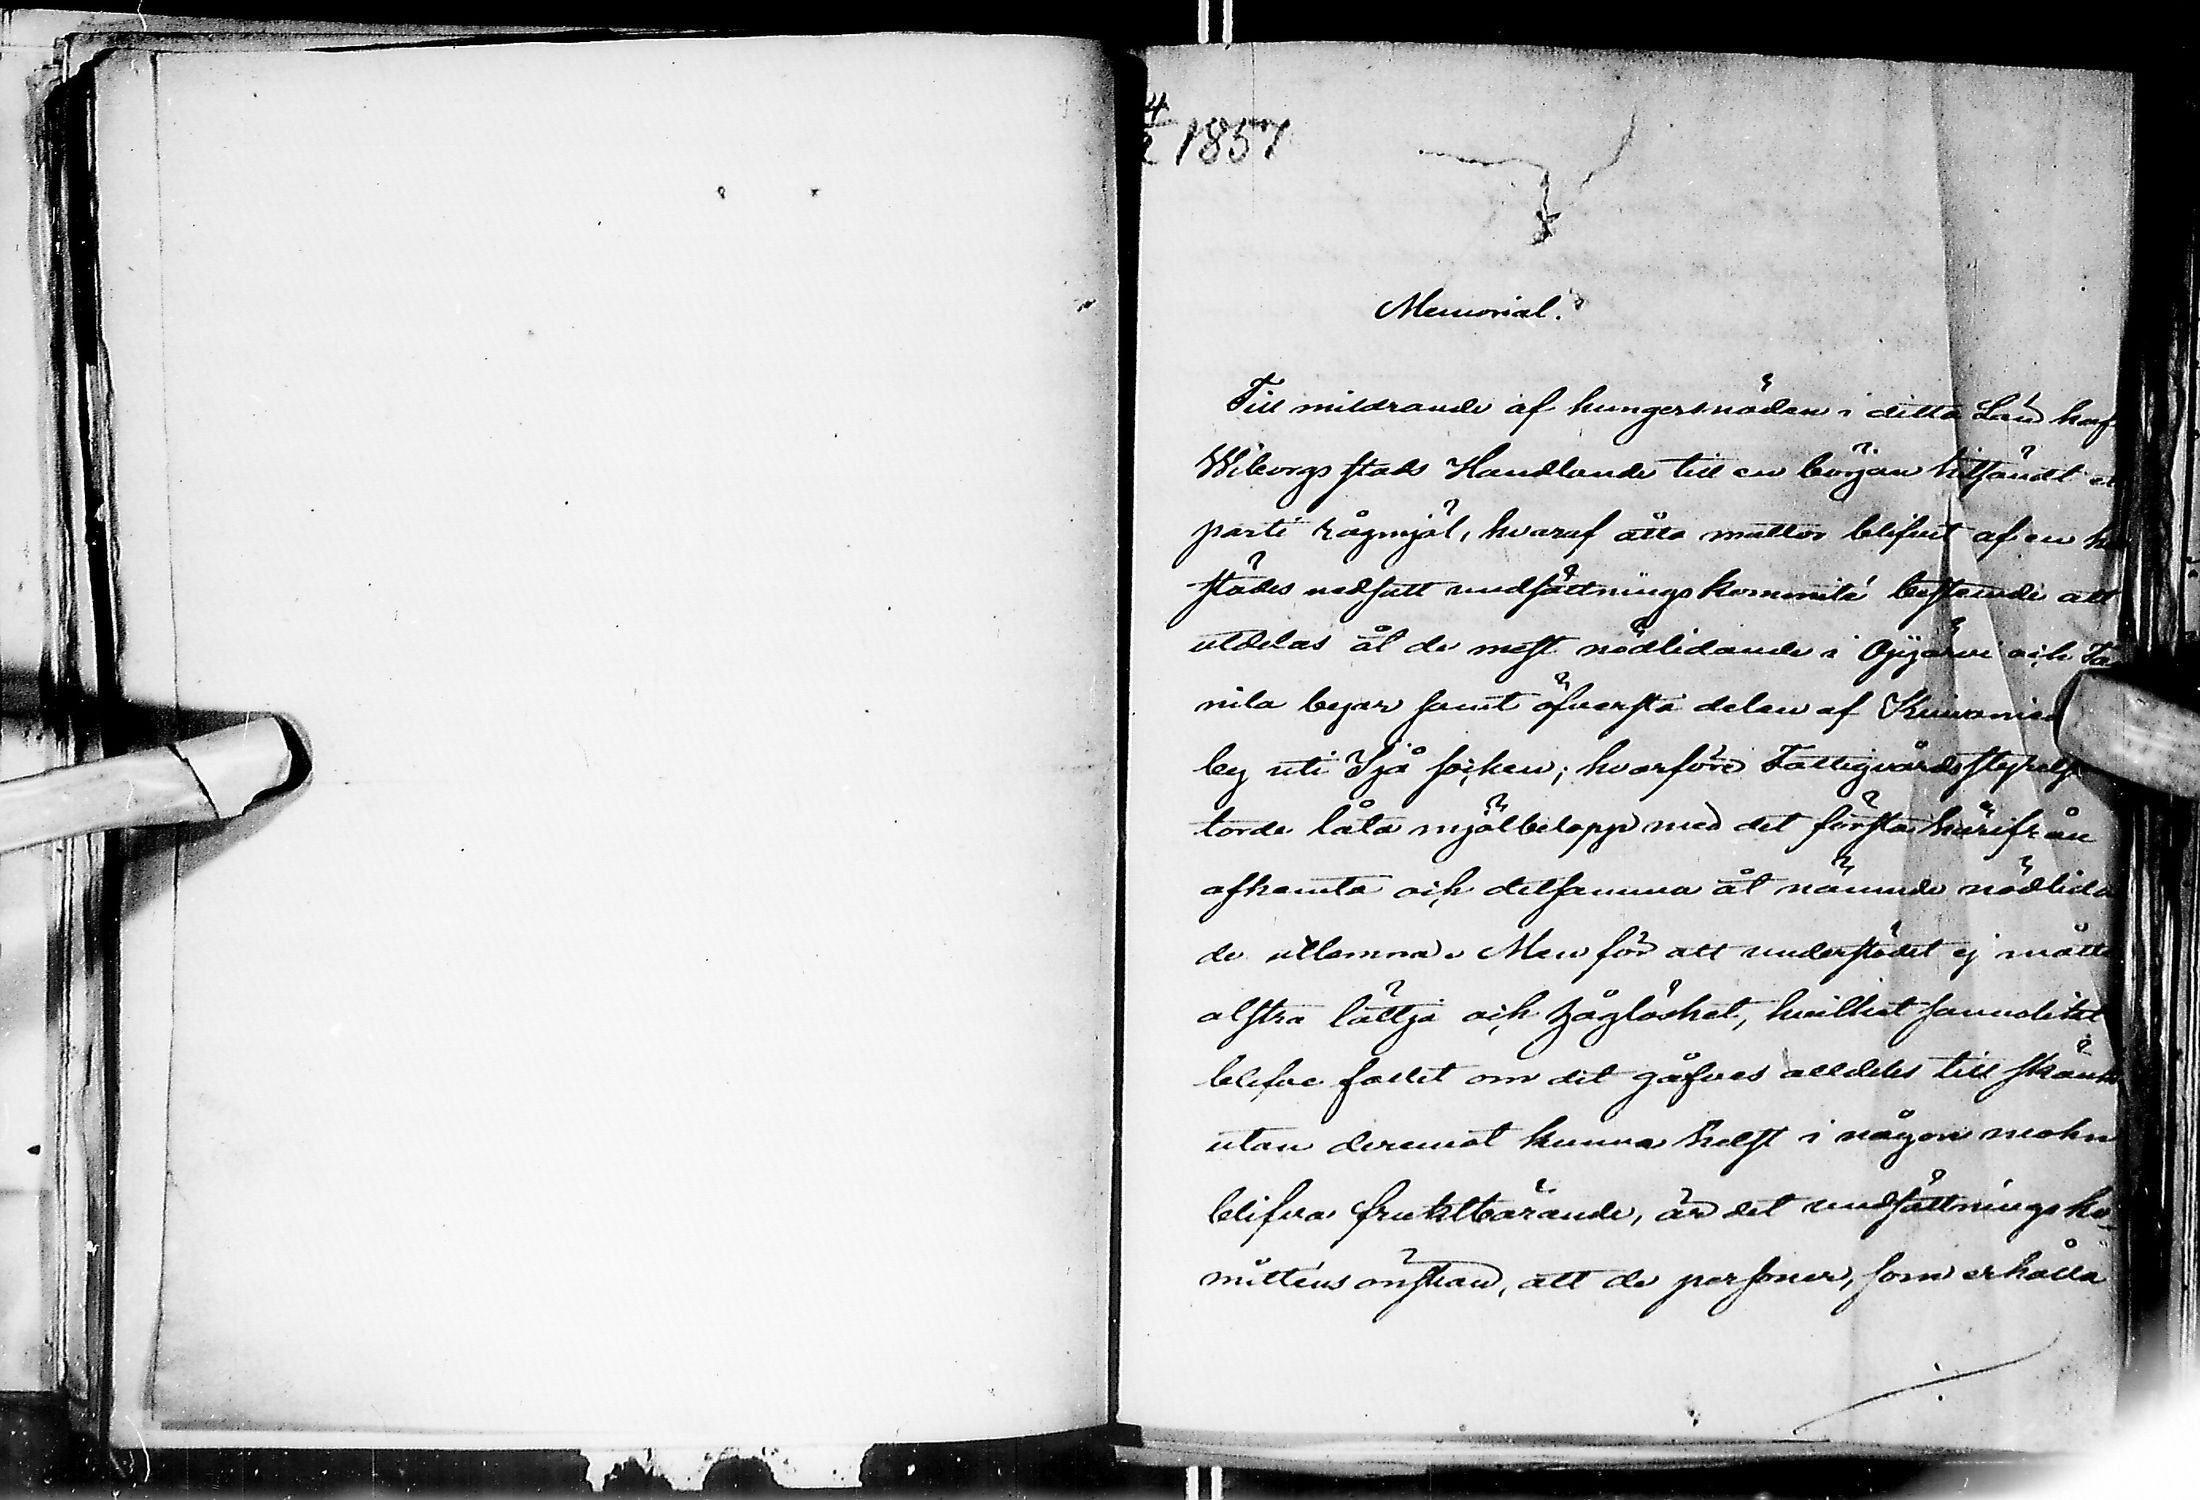 4/2 1857
Memorial.
Till mildrande af hungersnöden i detta Län haf
Wiborgs stads Handlande till en början hitsändt et
parti rågmjöl, hvaraf åtta mattor blifvit af en hä
städes nedsatt undsättnings kommité bestämde att
utdelas åt de mest nödlidande i Oijärvi och Ta
nila byar samt öfversta delen af Kuivanie
by uti Ijå socken; hvarföre Fattigvårdsstyrelse
torde låta mjölbelopp med det första härifrån
afhemta och detsamma åt nämnde nödlida
de utlemna. Men för att understödet ej måtte
alstra lättja och håglöshet, hvilket sannolikt
blefve fallet om det gåfves alldeles till skänk
utan deremot kunna helst i någon mohn
blifva fruktbärande, är det undsättnings ko-
mitténs önskan, att de personer, som erhålla
./.